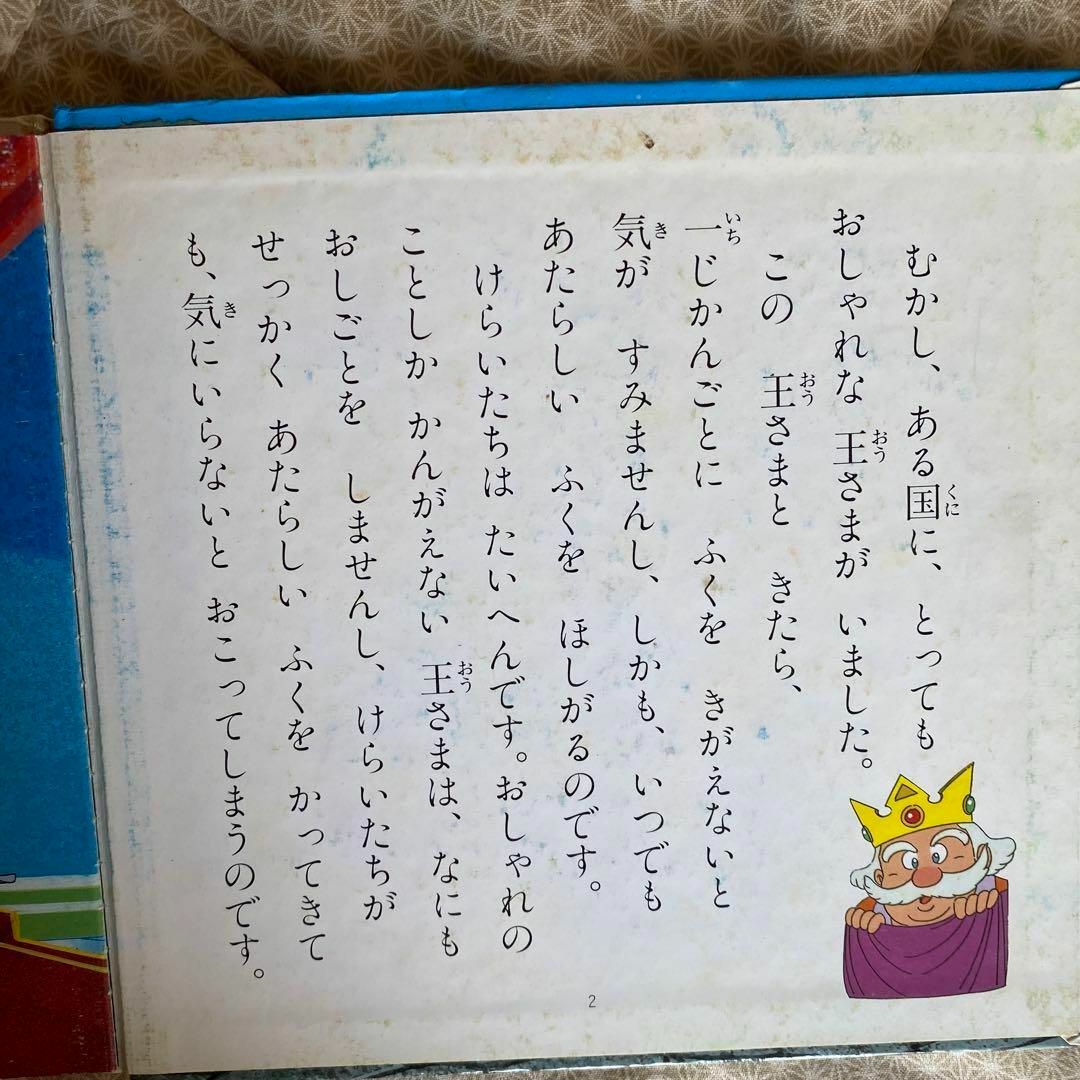 むかし、ある国に、とっても
おしゃれな 王さまが いました。
この 王さまと きたら、
一じかんごとに ふくを きがえないと
気が すみませんし、しかも、いつでも
あたらしい ふくを ほしがるのです。
けらいたちは たいへんです。おしゃれの
ことしか かんがえない 王さまは、なにも
おしごとを しませんし、けらいたちが
せっかく あたらしい ふくを かってきて
も、気にいらないと おこってしまうのです。
2